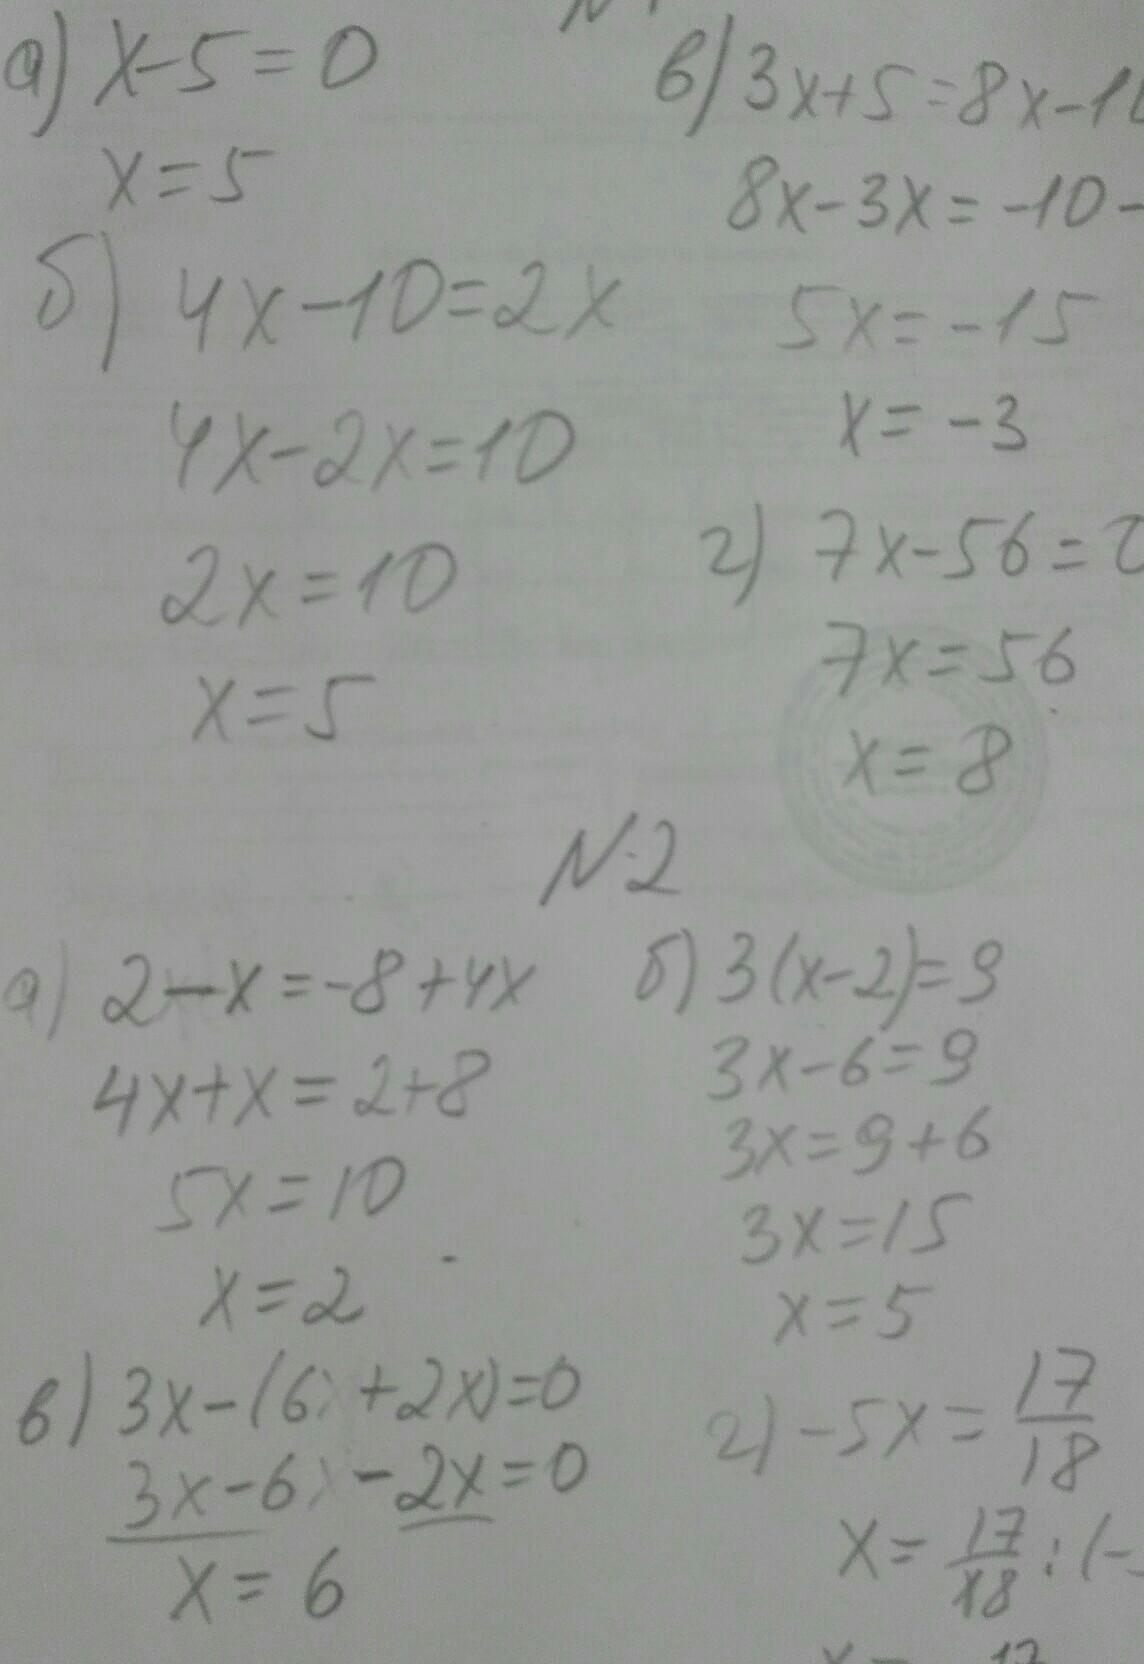 а) x-5=0
x=5
б) 4x-10=2x
4x-2x=10
2x=10
x=5
в) 3x+5=8x-1
8x-3x=-10-
5x=-15
x=-3
г) 7x-56=0
7x=56
x=8
N2
а) 2-x=-8+4x
4x+x=2+8
5x=10
x=2
б) 3(x-2)=9
3x-6=9
3x=9+6
3x=15
x=5
в) 3x-(6+2x)=0
3x-6-2x=0
x=6
г) -5x=17/18
x=17/18:(-